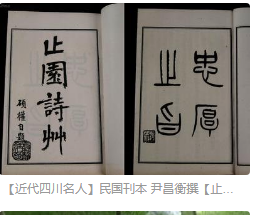 止園詩艸
碩權自題
忠厚
【近代四川名人】民国刊本 尹昌衡撰【止...